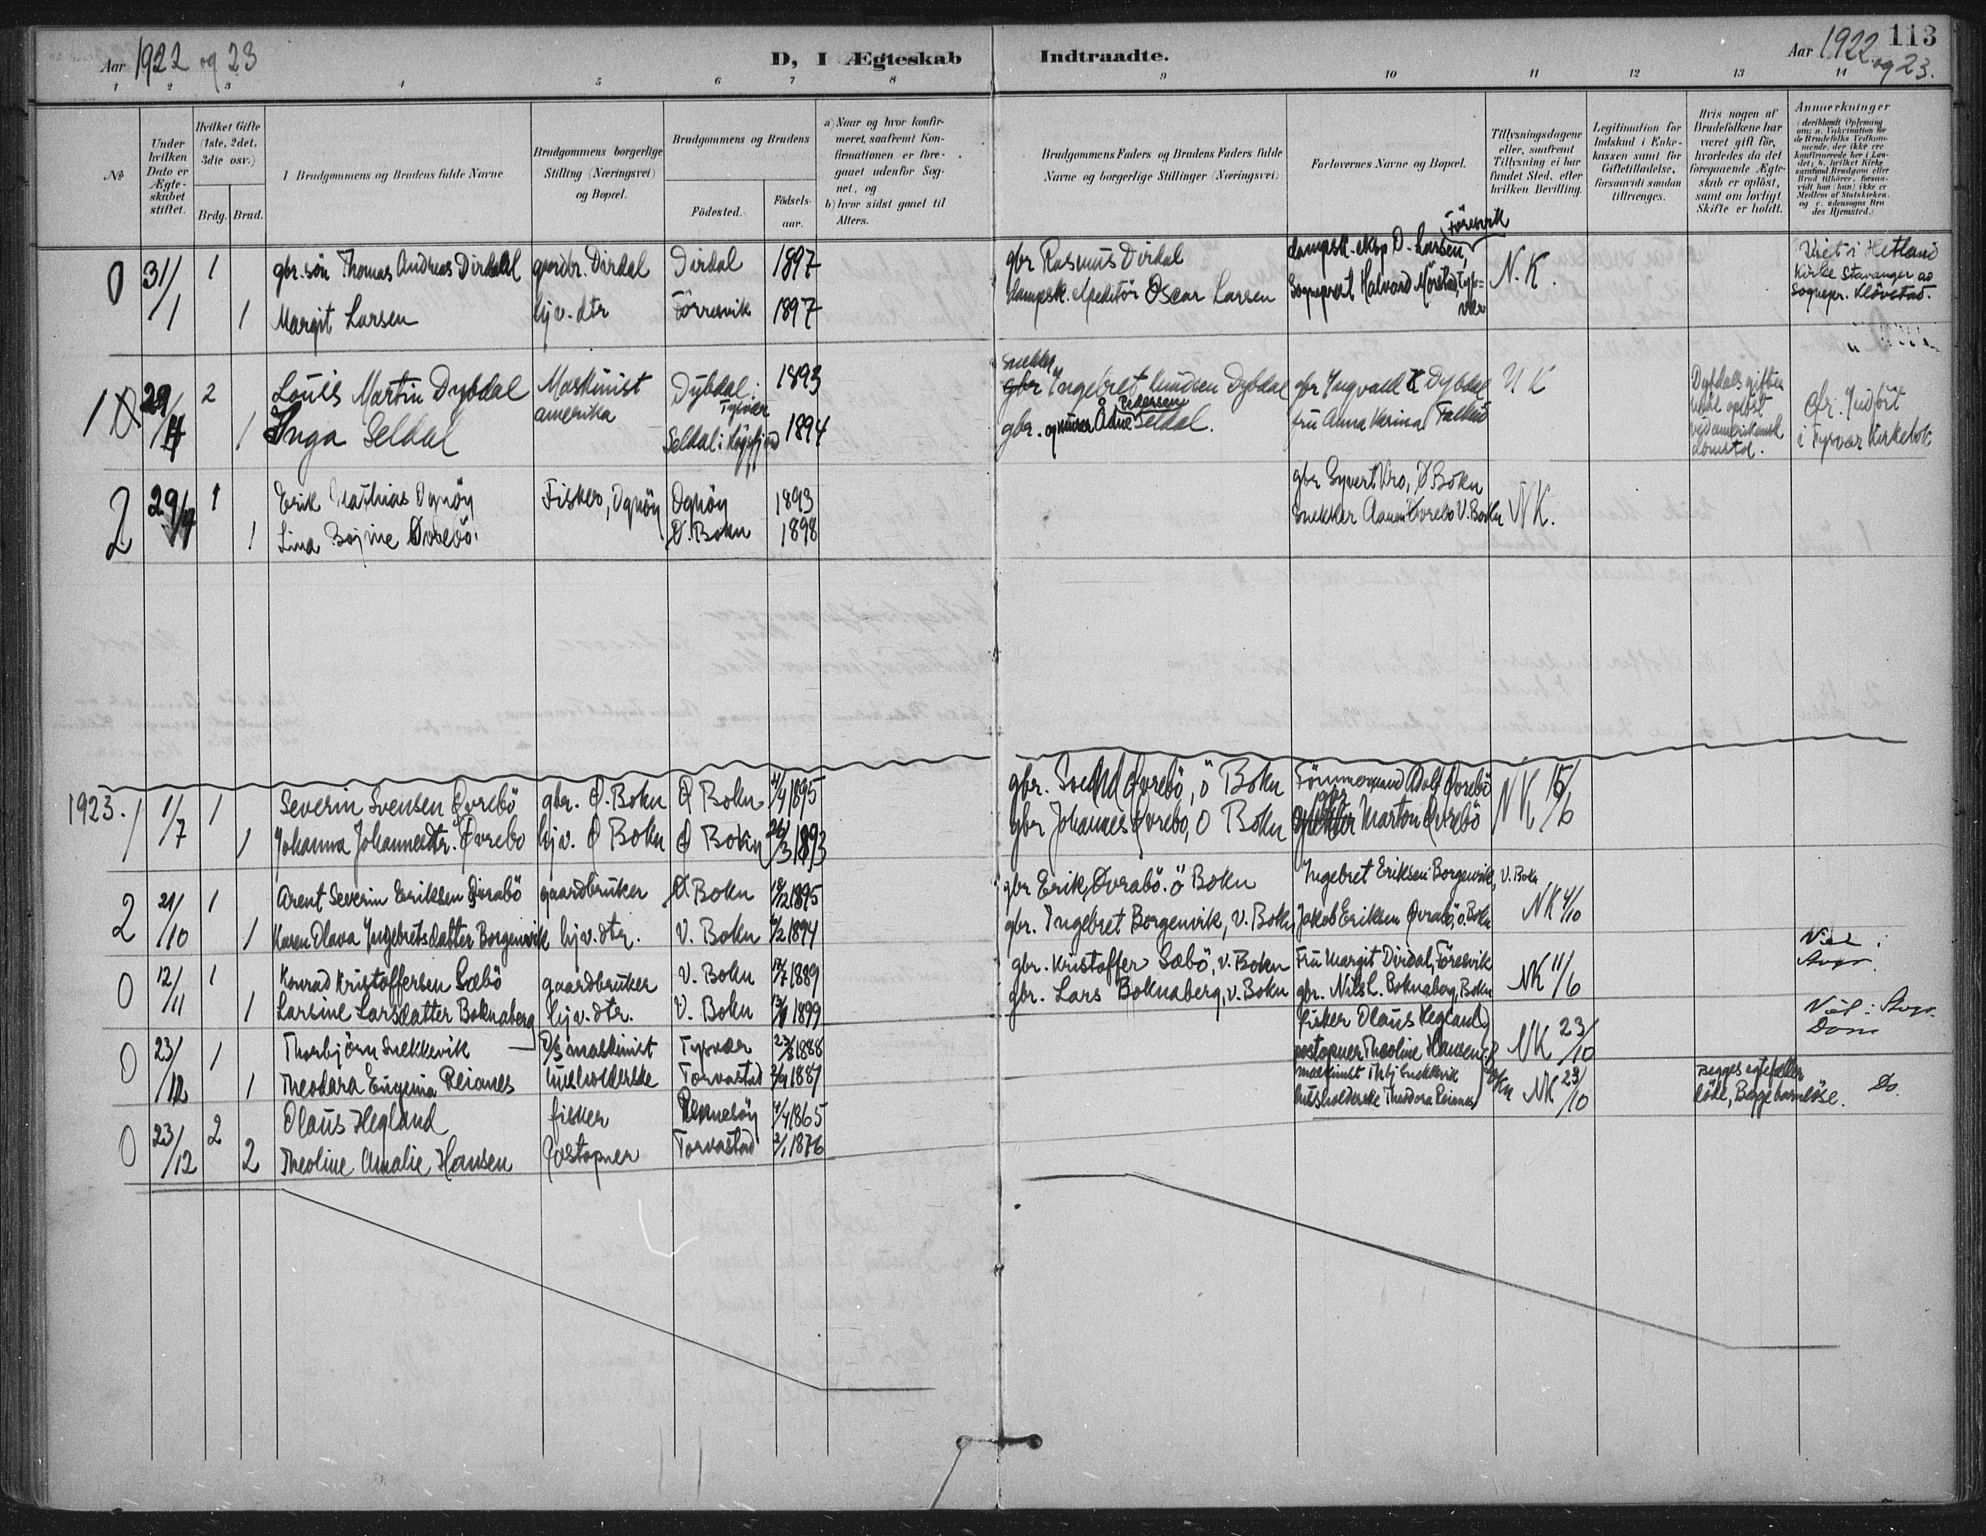 Aar 1922 og 23
D, I Ægteskab Indtraadte.
Aar 1922 og 23.
113
1 2 3 4 5 6 7 8 9 10 11 12 13 14
№
Under hvilken Dato er Ægteskabet stiftet.
Hvilket Gifte (1ste, 2det, 3die osv.)
Brdg. Brud.
1 Brudgommens og Brudens fulde Navne
Brudgommens borgerlige Stilling (Næringsvei) og Bopæl.
Brudgommens og Brudens
Fødested.
Fødselsaar.
a) Naar og hvor konfirmeret, saafremt Konfirmationen er foregaaet udenfor Sognet, og
b) hvor sidst gaaet til Alters.
Brudgommens Faders og Brudens Faders fulde Navne og borgerlige Stillinger (Næringsvei)
Forlovernes Navne og Bopæl.
Tillysningsdagene eller, saafremt Tillysning ei har fundet Sted, efter hvilken Bevilling.
Legitimation for Indskud i Enkekassen samt for Giftetilladelse, forsaavidt saadan tiltrænges.
Hvis nogen af Brudefolkene har været gift før, hvorledes da det foregaaende Ægteskab er opløst, samt om lovligt Skifte er holdt.
Anmerkninger
0 31/1 1 gbr. søn Thomas Andreas Dirdal gardbr. Dirdal Dirdal 1897 gbr Rasmus Dirdal dampsk. eksp O. Larsen, Föresvik N.K. Viet i Hetland Kirke Stavanger av Sognepr. Klövstad.
1 Margit Larsen hjv. dtr Förresvik 1897 dampsk. ekspeditör Oscar Larsen Sogneprest Halvard
1 29/4 2 Louis Martin Dybdal Maskinist amerika Dybdal Tysvær 1893 Snekker Ingebret Knudsen Dybdal gbr Ingvald K Dybdal N K Dybdals giften
1 Inga Seldal Seldal i Högsfjord 1894 gbr. og murer Ådne Pedersen Seldal. fru Anna Karina Cfr. Indfört i Tysvær Kirkebok
2 29/4 1 Erik Mathias Ognöy Fisker, Ognöy Ognöy 1893 gbr Syvert Kro, Ø Bokn NK.
1 Lina Øvrebö Ø. Bokn 1898 Snekker Øvrebö V. Bokn
1923. 1 1/7 1 Severin Svensen Øvrebö gbr. Ø. Bokn Ø Bokn 4/4 1895 gbr. Svend Øvrebö, ö Bokn Adolf Øvrebö NK 15/6
1 Johanna Johannesdtr. Øvrebö hjv. Ø Bokn Ø Bokn 26/3 1893 gbr Johannes Øvrebö, O Bokn gbr Marton Øvrebö
2 21/10 1 Arent Severin Eriksen Øvrabö gaardbruker Ø Bokn 18/12 1895 gbr Erik Øvrabö. ö Bokn Ingebret Eriksen Borgenvik, V. Bokn NK 4/10
1 Karen Olava Ingebretsdatter Borgenvik hjv. dtr. V. Bokn 1894 gbr. Ingebret Borgenvik, V. Bokn Jakob Eriksen Øvrabö, ö. Bokn
0 12/11 1 Konrad Kristoffersen Sæbö gaardbruker V. Bokn 1889 gbr. Kristoffer Sæbö, v. Bokn Fru Margit Dirdal, Föresvik NK 11/6 Viet i
1 Larsine Larsdatter Boknaberg hjv. dtr. V. Bokn 1899 gbr. Lars Boknaberg, v. Bokn gbr. Nils L. Boknaberg, Bokn
0 23/12 1 Thorbjörn Snekkevik D/S maskinist Tysvær 1888 fisker Olaus Hegland NK 23/10 Viet i Dom
1 Theodora Eugenia Reianes husholderske Torvastad 1887 postopner Theoline Hansen
0 23/12 2 Olaus Hegland fisker Rennesöy 4/4 1865 maskinist Snekkevik NK 23/10 Begges egtefæller döde, Begge barnlöse. Do.
2 Theoline Amalie Hansen Postopner Torvastad 2/1 1876 husholderske Theodora Reianes